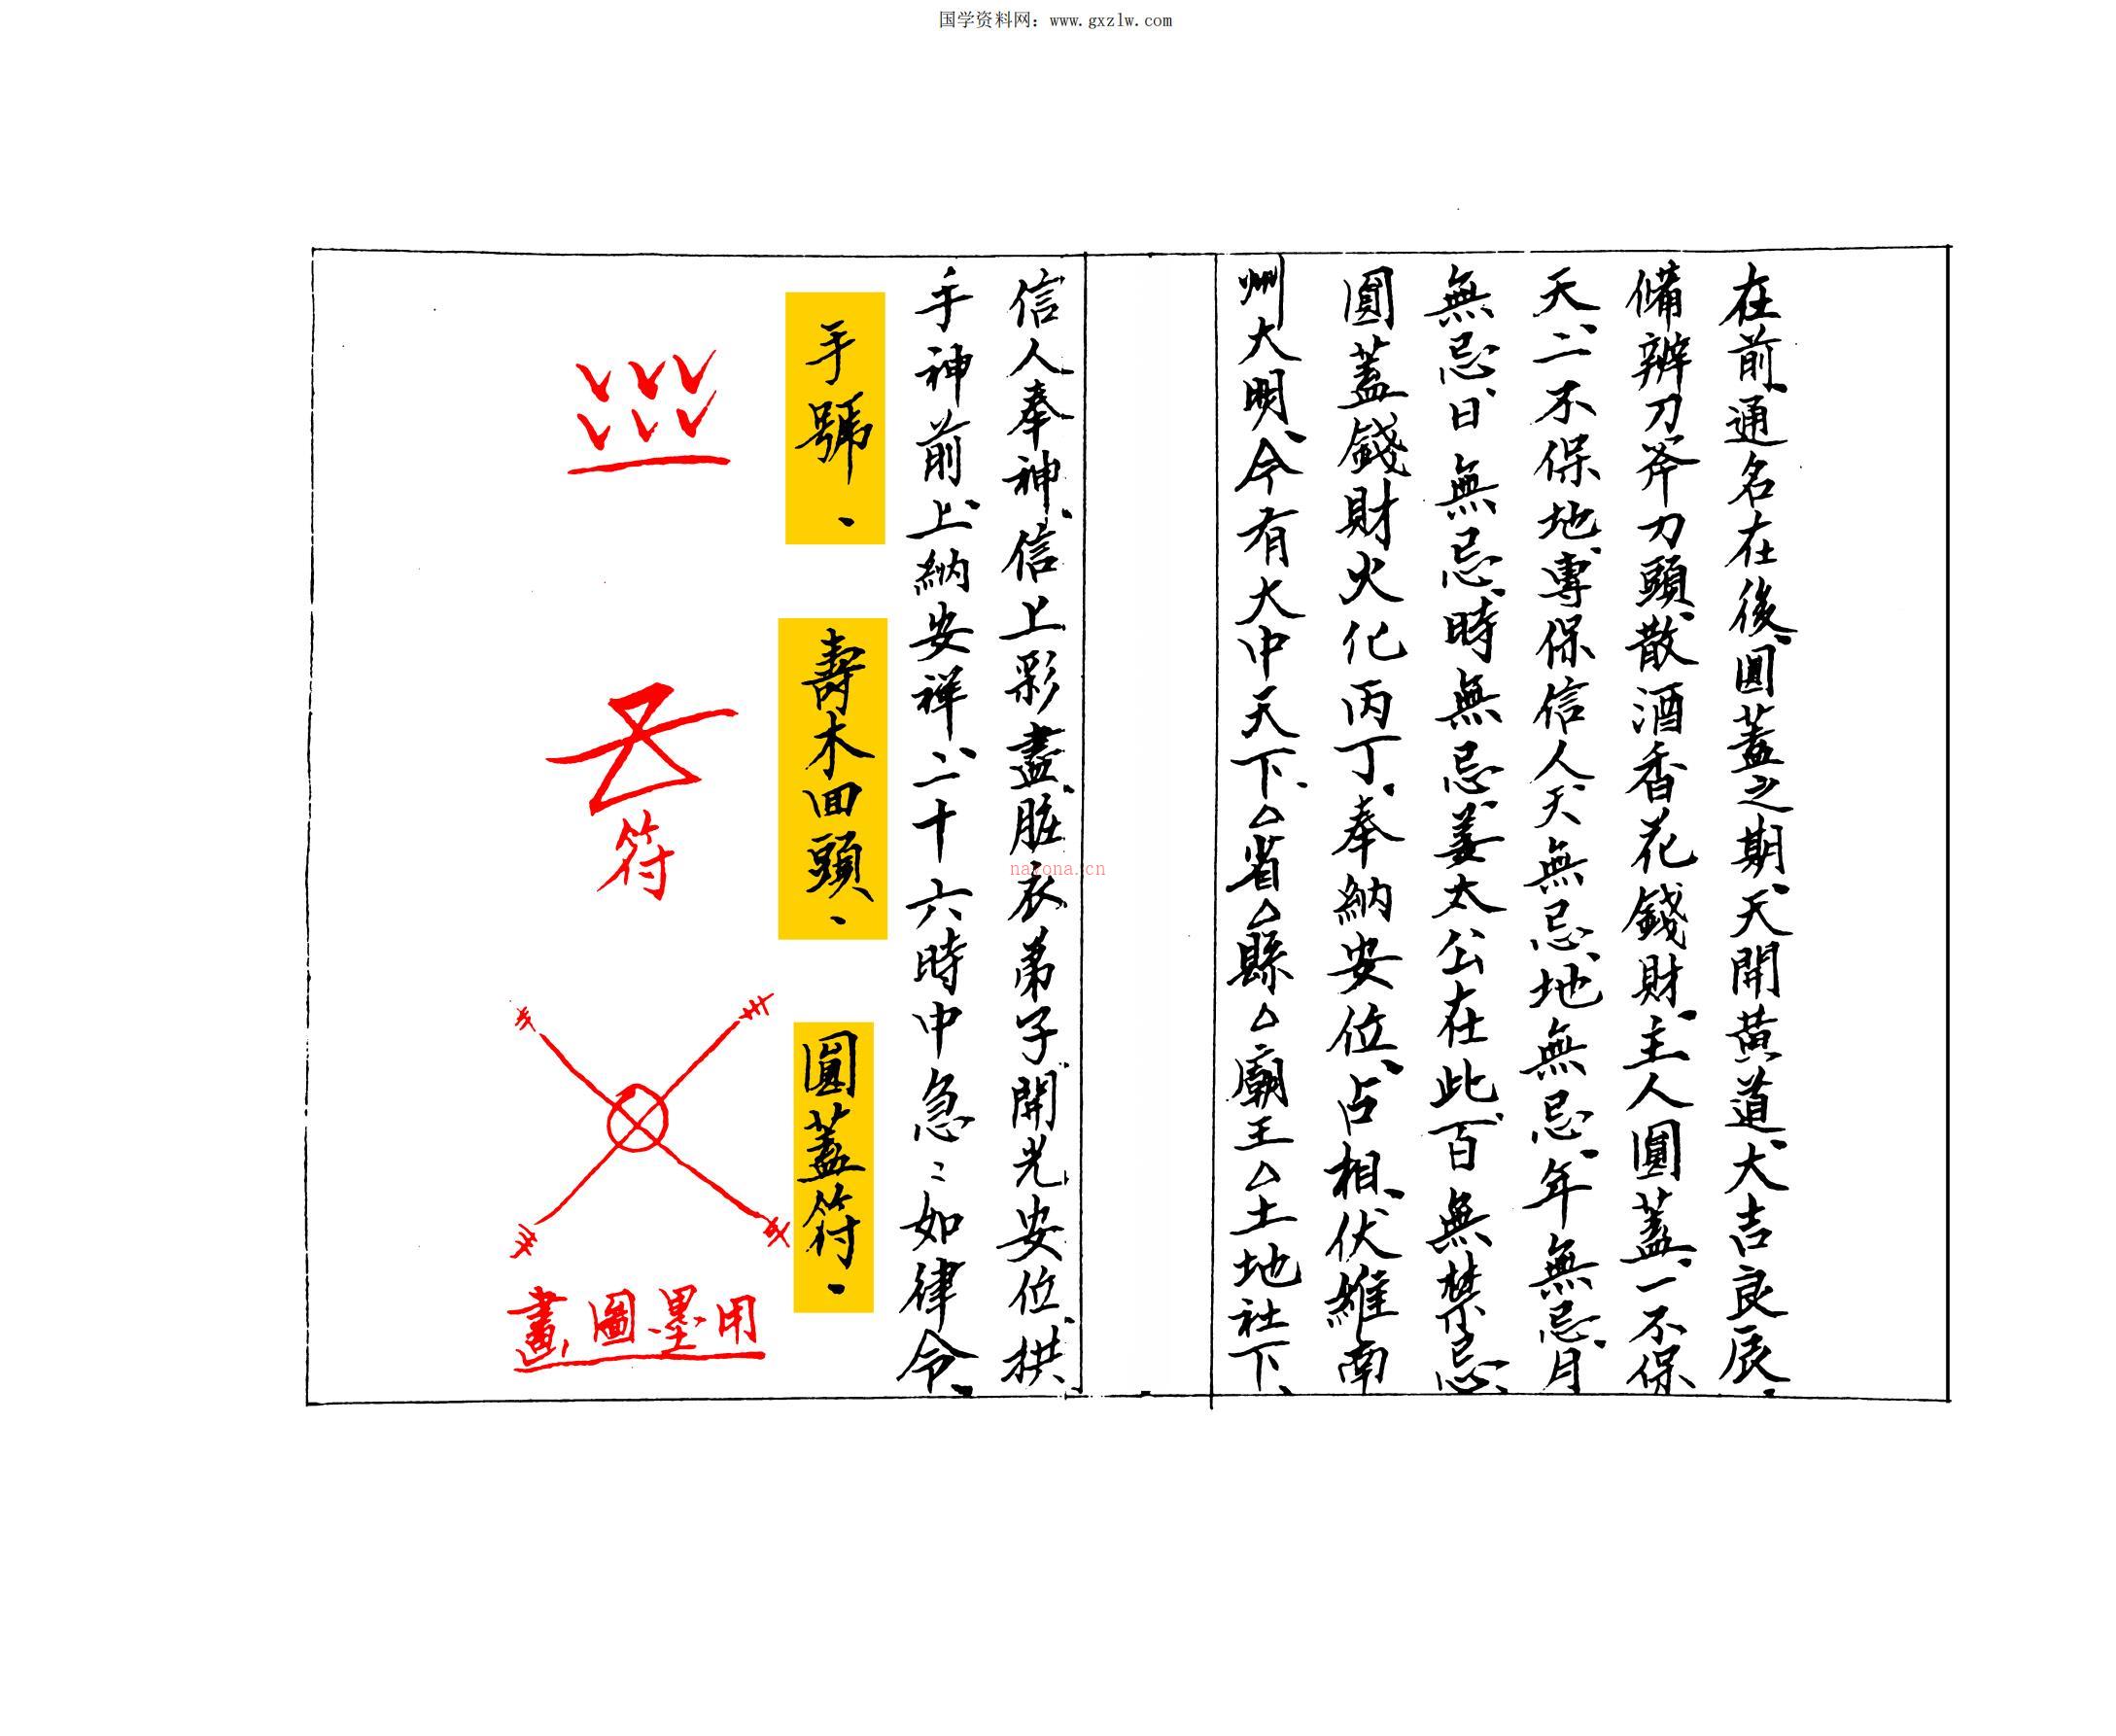 国学资料网：www.gxzlw.com
在前、通名在後、圓蓋之期、天開黄道、大吉良辰、
備辦刀斧刀頭、散酒香花錢財、主人圓蓋、一不保
天、二不保地、專保信人、天無忌、地無忌、年無忌、月
無忌、日無忌、時無忌、姜太公在此、百無禁忌、
圓蓋錢財火化丙丁、奉納安位、占相、伏維南
州大明、今有大中天下、△省△縣△廟王△土地社下、
信人奉神、信上彩畫、脏衣弟子、開光安位、拱
手神前、上納安禅、二十六時中急〻如律令、
手號、
壽木回頭、
圓蓋符、
符
用墨圖畫
nayona.cn